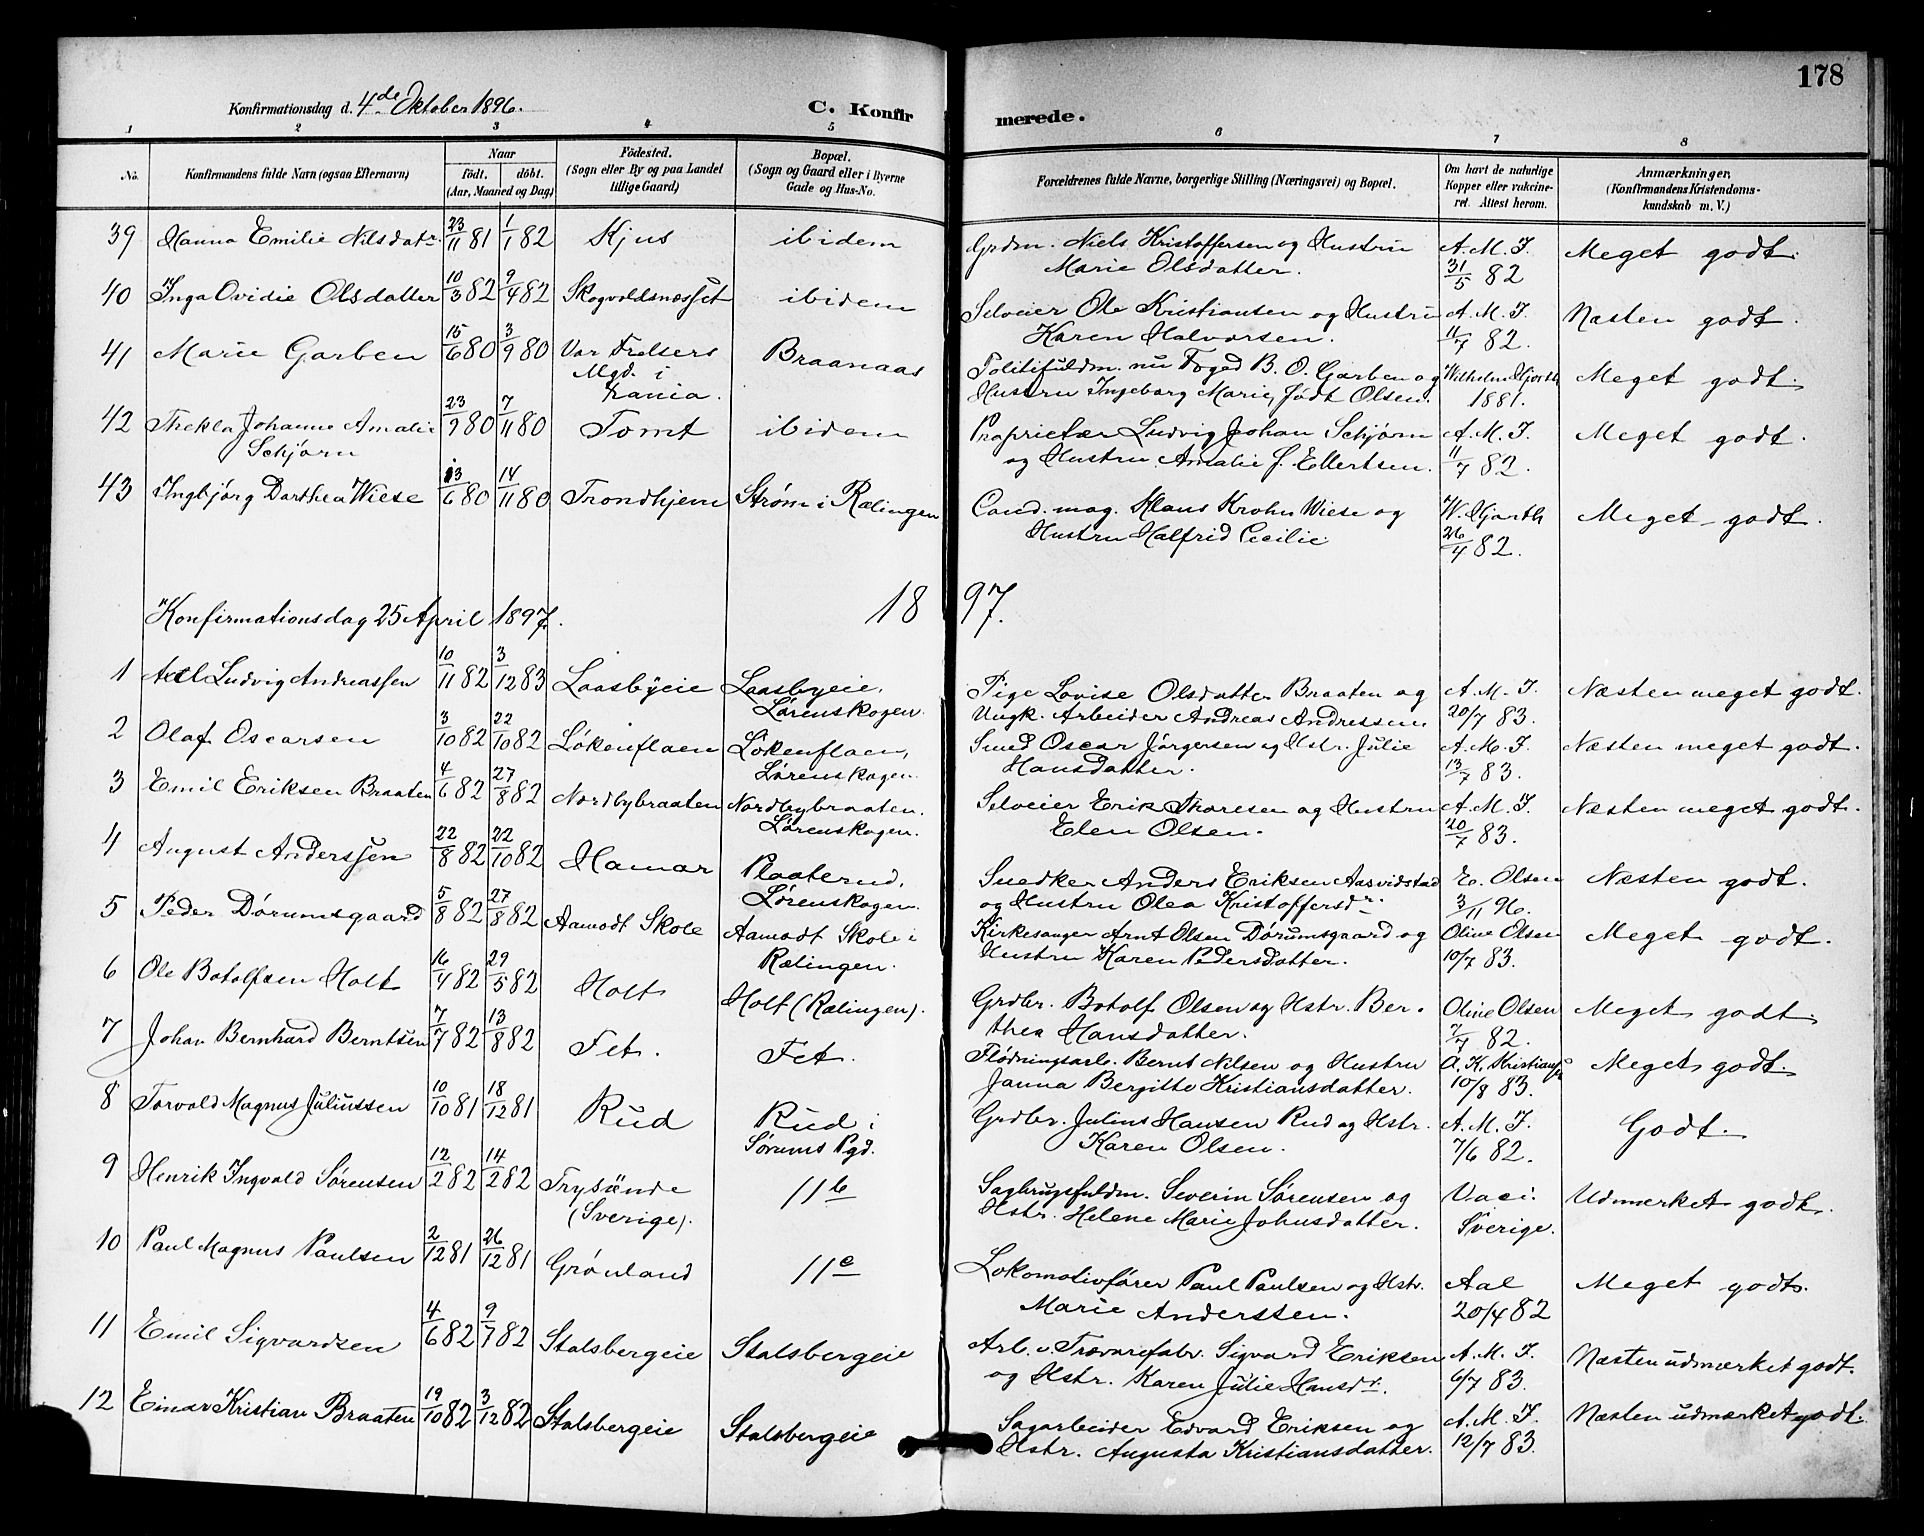 178
Konfirmationsdag d. 4de Oktober 1896.
C. Konfirmerede.
1 2 3 4 5 6 7 8
No. Konfirmandens fulde Navn (ogsaa Efternavn) Naar født. døbt. (Aar, Maaned og Dag) Födested. (Sogn eller By og paa Landet tillige Gaard) Bopæl. (Sogn og Gaard eller i Byerne Gade og Hus-No. Forældrenes fulde Navne, borgerlige Stilling (Næringsvei) og Bopæl. Om havt de naturlige Kopper eller vakcineret. Attest herom. Anmærkninger. (Konfirmandens Kristendomskundskab m. V.)
39 Hanna Emilie Nilsdatr. 23/11 81 1/1 82 Kjus ibidem Grdm. Niels Kristoffersen og Hustru Marie Olsdatter. A. M. I. 31/5 82 Meget godt.
40 Inga Ovidie Olsdatter 10/3 82 9/4 82 Skogvoldsnesset ibidem Selveier Ole Kristiansen og Hustru Karen Halvorsen. A. M. I. 11/7 82. Næsten godt.
41 Marie Garben 15/6 80 3/9 80 Vor Frelsers Mgd. i Krania. Braanaas Politifuldm. nu Foged B. O. Garben og Hustru Ingeborg Marie, født Olsen. Wilhelm Hjorth 1881. Meget godt.
42 Thekla Johanne Amalie Schjørn 23/9 80 7/11 80 Tomt ibidem Proprietær Ludvig Johan Schjørn og Hustru Amalie f. Ellertsen. A. M. I. 11/7 82. Meget godt.
43 Ingbjørg Dorthea Wiese 13/6 80 14/11 80 Trondhjem Strøm i Rælingen Cand. mag. Klaus Krohn Wiese og Hustru Halfrid Cecilie. W. Hjorth 26/4 82. Meget godt.
Konfirmationsdag 25 April 1897. 1897.
1 Axel Ludvig Andreassen 10/11 82 3/12 83 Laasbyeie Laasbyeie, Lørenskogen. Pige Lovise Olsdatter Braaten og Ungk. Arbeider Andreas Andressen. A. M. I. 20/7 83. Næsten meget godt.
2 Olaf Oscarsen 3/10 82 22/10 82 Løkenflaen Løkenflaen, Lørenskogen. Smed Oscar Jørgersen og Hstr. Julie Hansdatter. A. M. I. 13/7 83. Næsten meget godt.
3 Emil Eriksen Braaten 4/6 82 27/8 82 Nordbybraaten Nordbybraaten. Lørenskogen. Selveier Erik Thoresen og Hustru Elen Olsen. A. M. I. 20/7 83. Næsten meget godt.
4 August Anderssen 22/8 82 22/10 82 Hamar Plaaterud, Lørenskogen. Snedker Anders Eriksen Aasvidstad og Hustru Olea Kristoffersdr. E. Olsen 3/11 96. Næsten godt.
5 Peder Dørumsgaard 5/8 82 27/8 82 Aamodt Skole Aamodt Skole i Rælingen. Kirkesanger Arnt Olsen Dørumsgaard og Hustru Karen Pedersdatter. Oline Olsen 10/7 83. Meget godt.
6 Ole Botolfsen Holt 16/4 82 29/5 82 Holt Holt (Rælingen). Grdbr. Botolf Olsen og Hstr. Berthea Hansdatter. Oline Olsen 7/7 82. Meget godt.
7 Johan Bernhard Berntsen 7/7 82 13/8 82 Fet. Fet. Flødningsarb. Bernt Nilsen og Hustru Janna Bergitte Kristiansdatter. A. K. Kristiansen 10/8 83. Meget godt.
8 Torvald Magnus Juliussen 10/10 81 18/12 81 Rud Rud i Sørums Pgd. Grdbr. Julius Hansen Rud og Hstr. Karen Olsen. A. M. I. 7/6 82. Godt.
9 Henrik Ingvald Sørensen 12/2 82 14/2 82 Trysände (Sverige). 11b Sagbrugsfuldm. Severin Sørensen og Hstr. Helene Marie Johnsdatter. Vaci. Sverige. Udmærket godt.
10 Paul Magnus Paulsen 2/12 81 26/12 81 Grønland 11c Lokomotivfører Paul Paulsen og Hstr. Marie Anderssen. Aal 20/4 82 Meget godt.
11 Emil Sigvardsen 4/6 82 9/7 82 Stalsbergeie Stalsbergeie Arb. v. Trævarefabr. Sigvard Eriksen og Hstr. Karen Julie Hansdr. A. M. I. 6/7 83. Næsten udmærket godt.
12 Einar Kristian Braaten 19/10 82 3/12 82 Stalsbergeie Stalsbergeie Sagarbeider Edvard Eriksen og Hstr. Augusta Kristiansdatter. A. M. I. 12/7 83. Næsten udmærket godt.